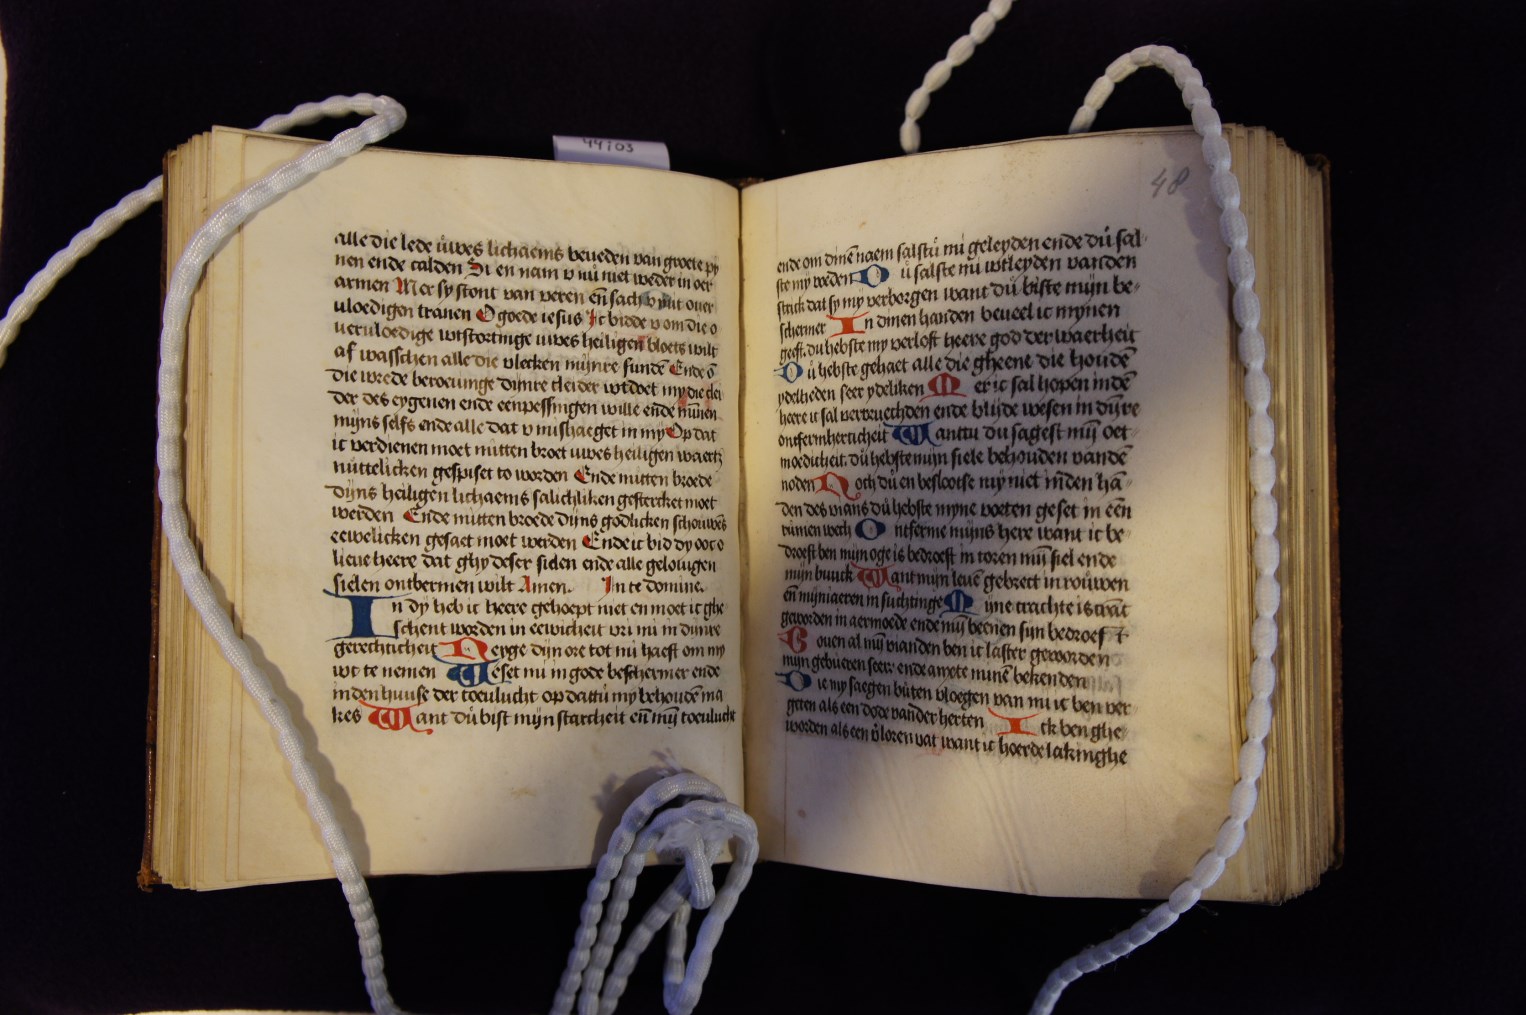 44703
alle die lede uwes lichaems beueden van groete py
nen ende calden Si en nam v nu niet weder in oer
armen Mer sy stont van veren en̄ sach v mit ouer
vloedigen tranen O goede iesus Ic bidde v om die o
uervloedige wtstortinge uwes heiligen bloets wilt
af wasschen alle die vlecken mijnre sunden̄ Ende ō
die wrede beroeuinge dijnre cleider wtdoet my die clei
der des eygenen ende eenpessingen wille ende mīnen
mijns selfs ende alle dat v mishaeget in my Op dat
ic verdienen moet mitten broet uwes heiligen waerts
nuttelicken gespiset to worden Ende mitten broede
dijns heiligen lichaems salichliken gestercket moet
werden Ende mitten broede dijns godlicken schouwēs
eewelicken gesaet moet werden Ende ic bid dy oec o
lieue heere dat ghy deser sielen ende alle gelouigen
sielen ontbermen wilt Amen. In te domine.
In dy heb ic heere gehoept niet en moet ic ghe
schent worden in eewicheit vri mi in dijnre
gerechticheit Neyge dijn ore tot mi haest om my
wt te nemen Weset mi in gode beschermer ende
in den huuse der toeulucht op dattu my behoudē ma
kes Want du bist mijn starcheit en̄ mij toeulucht
48
ende om dinē naem salstu mi geleyden ende du sal
ste my voeden Du salste mi wtleyden vanden
strick dat sy my verborgen want du biste mijn be
schermer In dinen handen beueel ic mynen
geest. du hebste my verlost heere god der waerheit
Du hebste gehaet alle die gheene die houdē
ydelheden seer ydeliken Mer ic sal hopen indē
heere ic sal vervruechden ende blijde wesen in dijnre
ontfermherticheit Wanttu du sagest mij oet
moedicheit. du hebste mijn siele behouden vandē
noden Noch du en beslootse my niet in den hā
den des vians du hebste myne voeten geset in een
ruimen wech Ontferme mijns here want ic be
droeft ben mijn oge is bedroeft in toren mij siel ende
mijn buuck Want mijn leuē gebreect in rouwen
en̄ mijn iaeren in suchtinge Mijne crachte is crāc
geworden in aermoede ende mij beenen sijn bedroeft
Bouen al mij vianden ben ic laster geworden
mijn gebueren seer ende anxte minē bekenden
Die my saegen buten vloegen van mi ic ben ver
geten als een dode vander herten Ick ben ghe
worden als een v̄loren vat want ic hoerde lakinghe